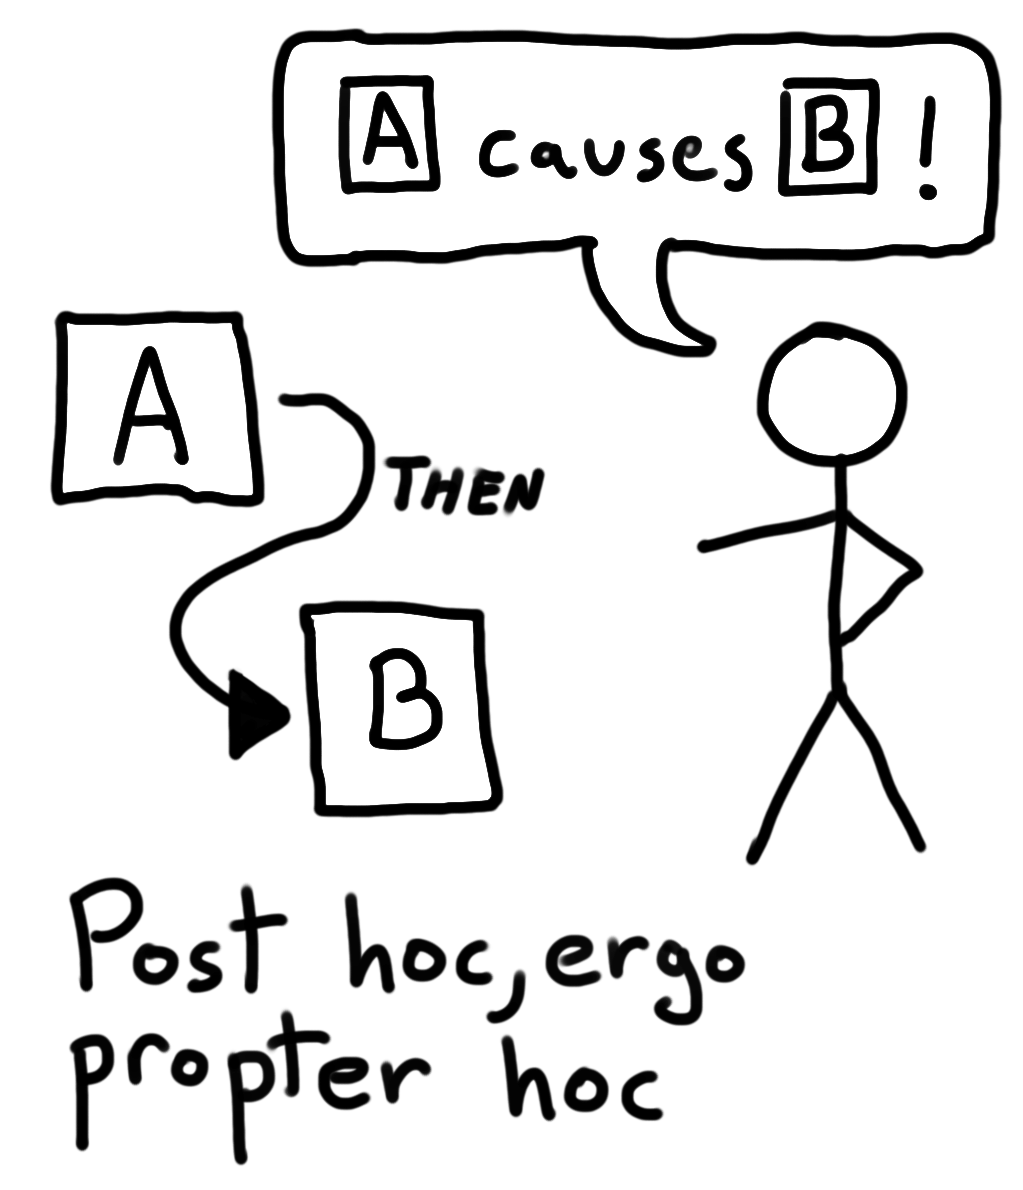 A causes B!
A
THEN
B
Post hoc, ergo
propter hoc